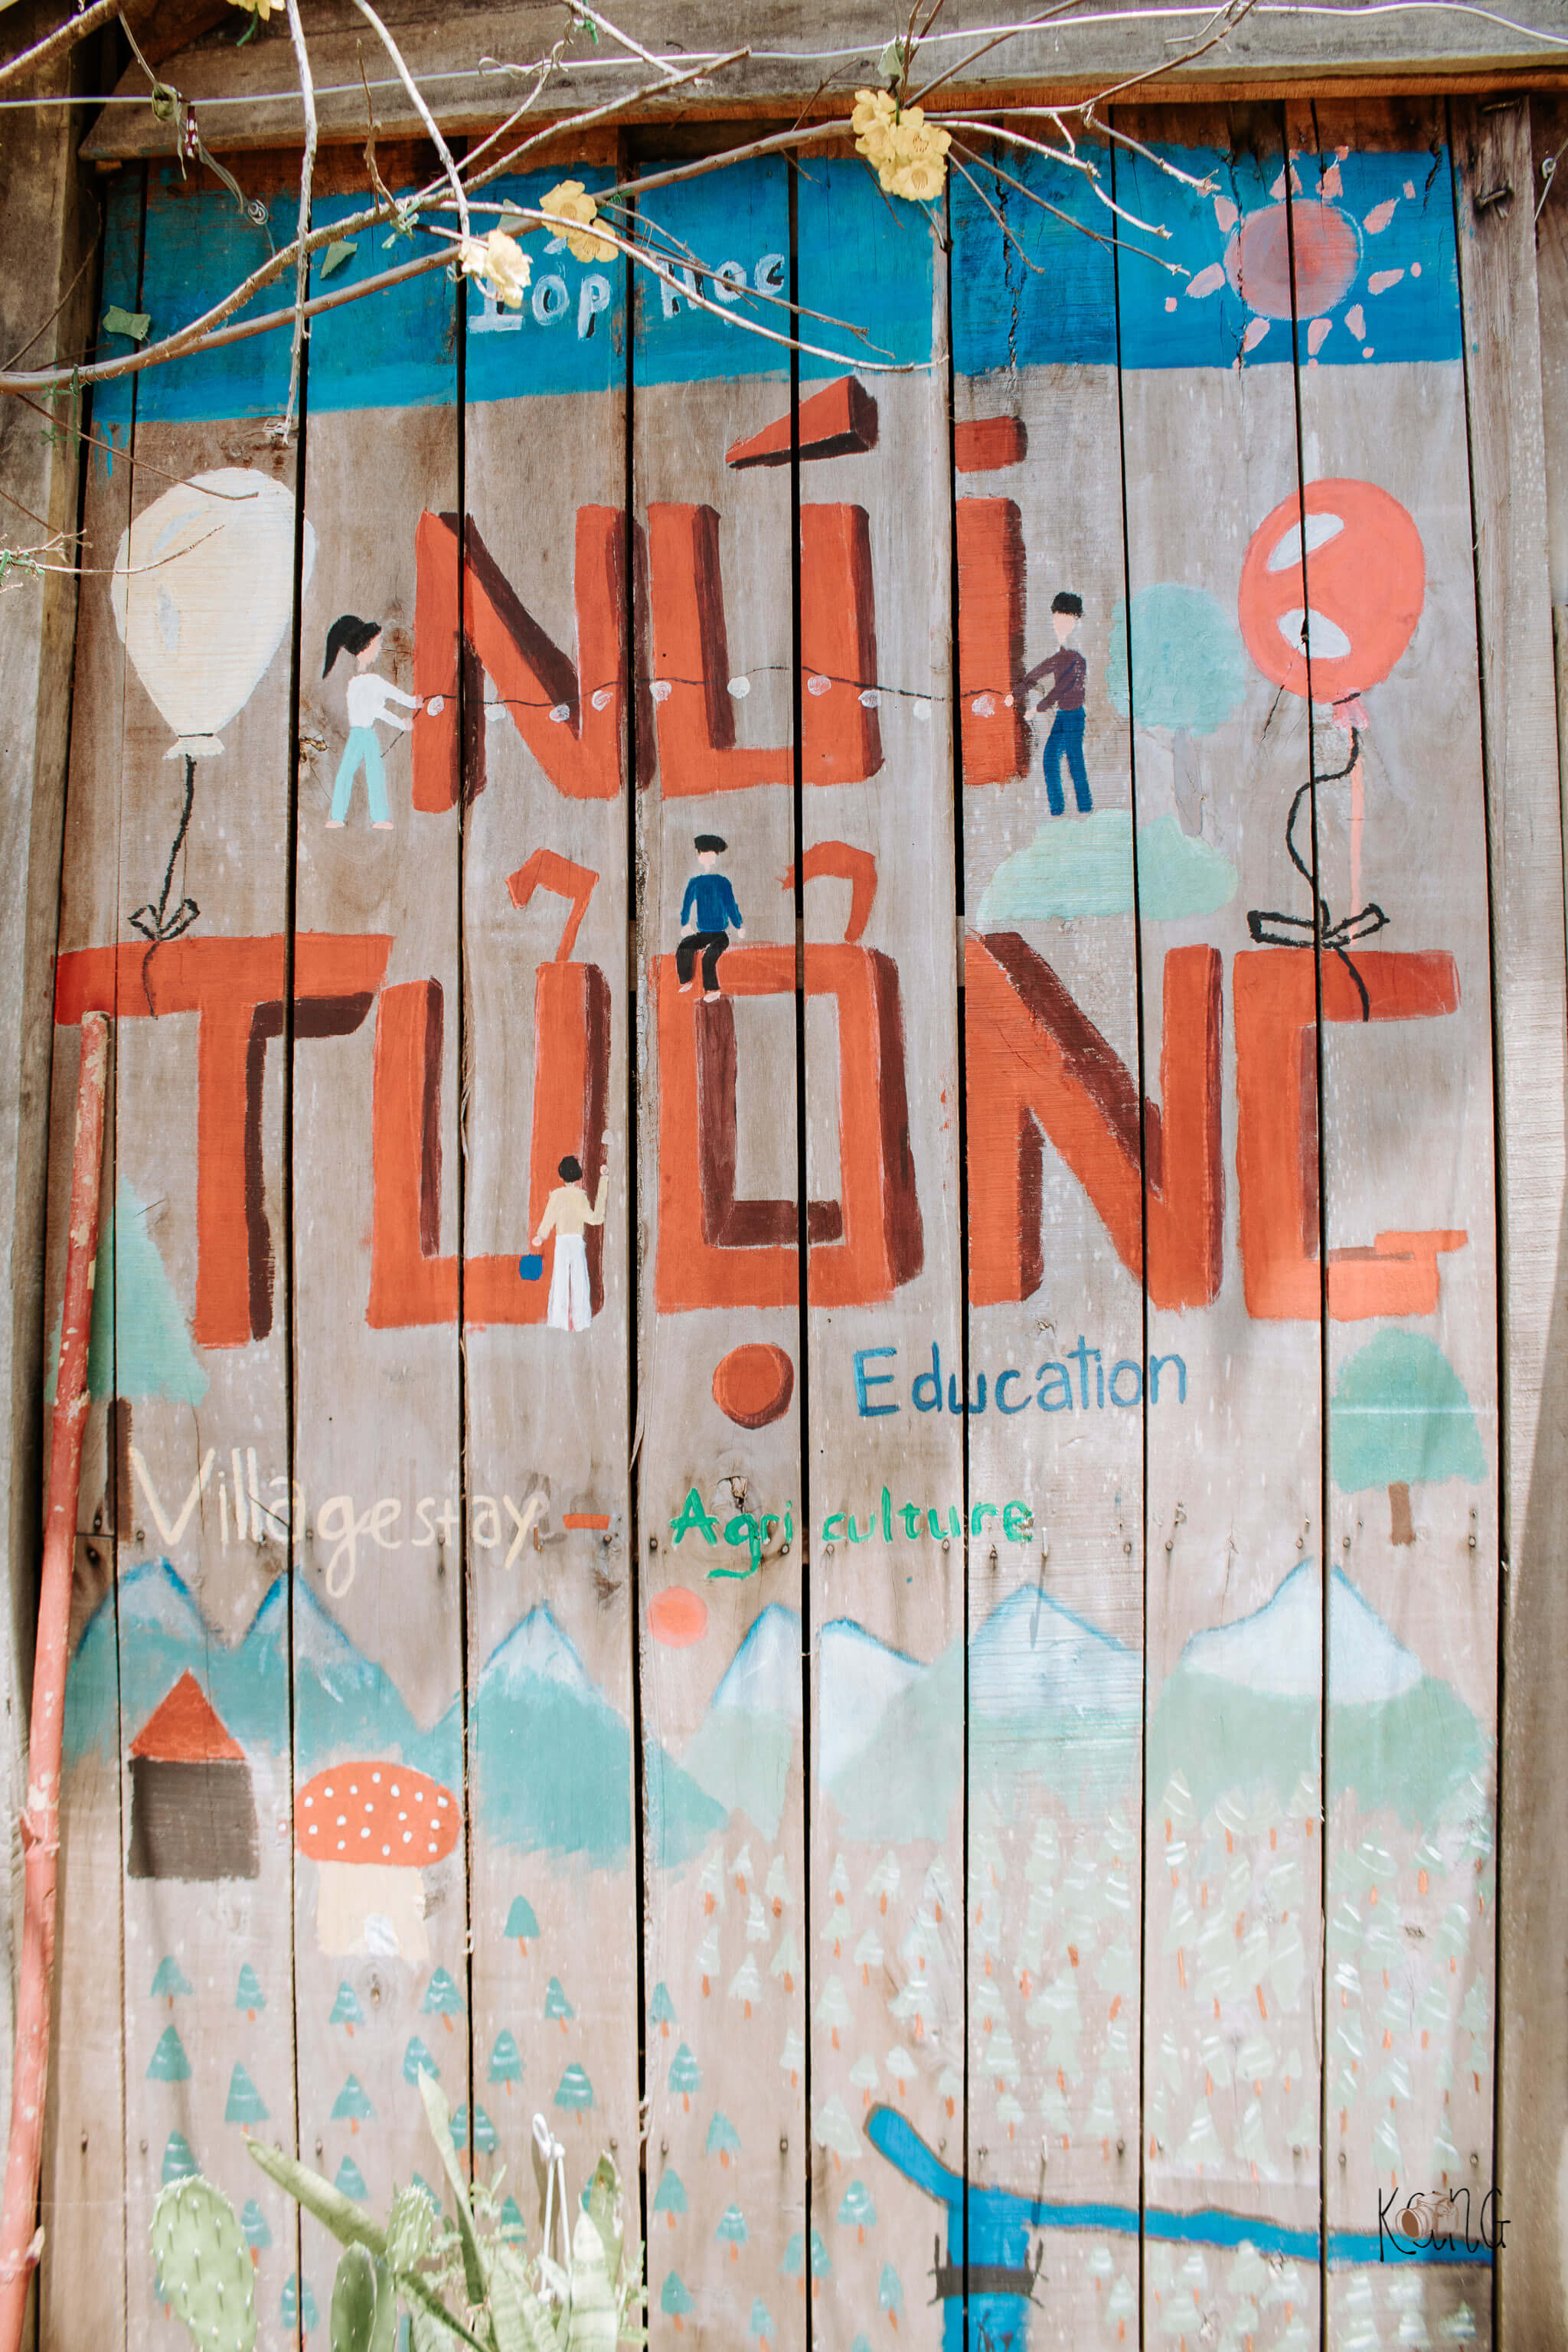 Lớp Học
NÚI
TƯỢNG
Education
Villagestay - Agriculture
KanG